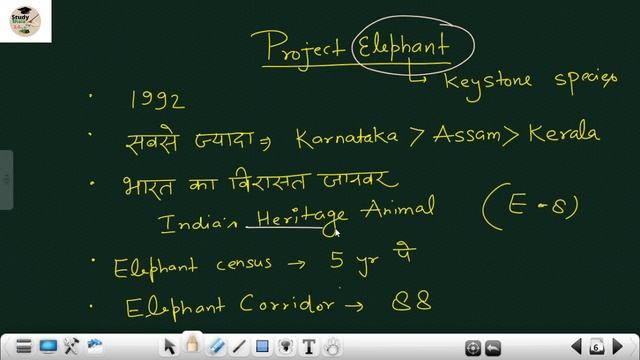 Study
Project Elephant
↳ Keystone species
• 1992
• सबसे ज्यादा ⇒ Karnataka > Assam > Kerala
• भारत का विरासत जानवर
Indian Heritage Animal (E-8)
• Elephant census → 5 yr पे
• Elephant Corridor → 88
6